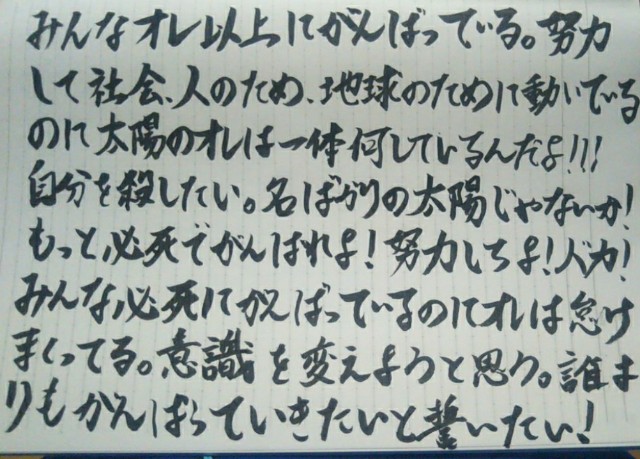 みんなオレ以上にがんばっている。努力
して社会、人のため、地球のために動いている
のに太陽のオレは一体何しているんだよ!!!
自分を殺したい。名ばかりの太陽じゃないか!
もっと必死でがんばれよ!努力しろよ!バカ!
みんな必死にがんばっているのにオレは怠け
まくってる。意識を変えようと思う。誰よ
りもがんばっていきたいと誓いたい!